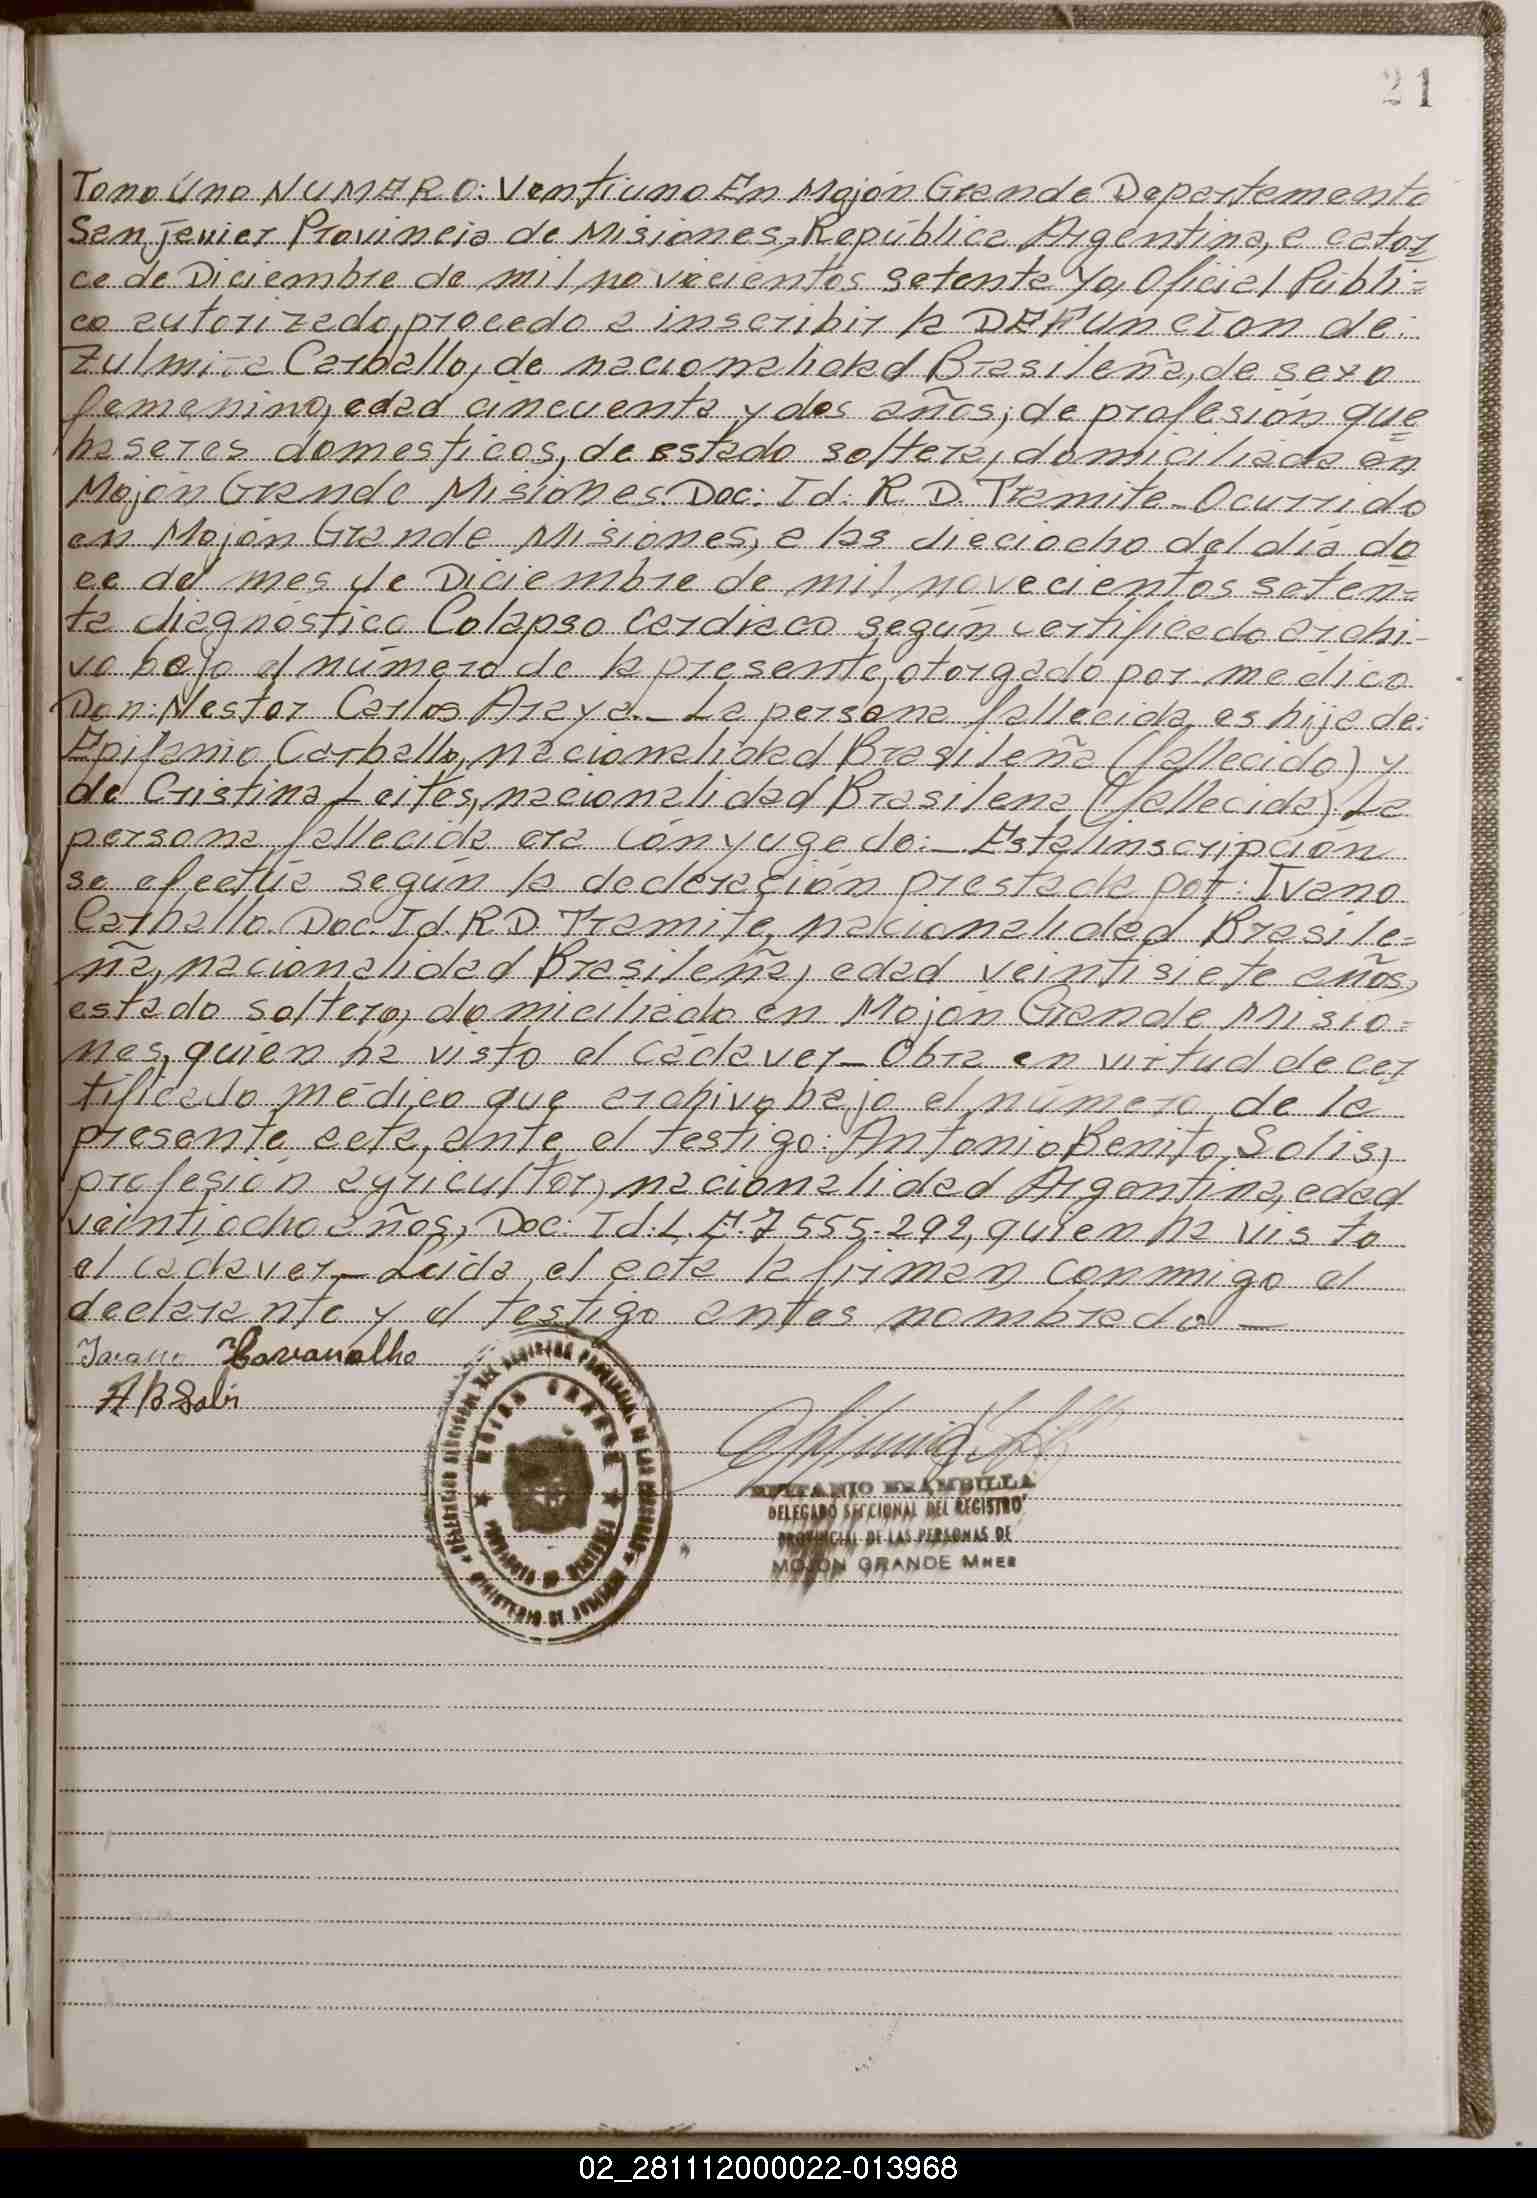 21
Tomo Uno NUMERO: Ventiuno En Mojón Grande Departamento
San Javier Provincia de Misiones, República Argentina, a cator
ce de Diciembre de mil novecientos setenta Yo, Oficial Públi=
co autorizado, procedo a inscribir la DEFUNCION de:
Zulmira Carballo, de nacionalidad Brasileña, de sexo
femenino, edad cincuenta y dos años, de profesión que=
haseres domesticos, de estado soltera, domiciliada en
Mojón Grande Misiones. Doc: Id: R. D. Tramite_ Ocurrido
en Mojón Grande Misiones, a las dieciocho del día do
ce del mes de Diciembre de mil novecientos seten=
ta diagnóstico Colapso Cardiaco según certificado archi-
vo bajo el número de la presente, otorgado por medico
Don: Nestor Carlos Araya._ La persona fallecida es hija de:
Epifanio Carballo, nacionalidad Brasileña (fallecido) y
de Cristina Leites, nacionalidad Brasilena (fallecida). La
persona fallecida era cónyuge de:_ Esta inscripción
se efectúa según la declaración prestada por: Ivano
Carballo. Doc. Id. R.D. Tramite, nacionalidad Brasile=
ña, nacionalidad Brasileña, edad veintisiete años,
estado soltero, domiciliado en Mojón Grande Misio=
nes, quien ha visto el cádaver_ Obra en virtud de cer
tificado médico que archivo bajo el número de la
presente acta, ante el testigo: Antonio Benito Solis,
profesión agricultor, nacionalidad Argentina, edad
veintiocho años, Doc: Id: L.E. 7.555.292, quien ha visto
el cadaver_ Leida el acta la firman conmigo el
declarante y el testigo antes nombrado_
Ivano Carvanalho
A B Solis
DELEGACION SECCIONAL DEL REGISTRO PROVINCIAL DE LAS PERSONAS
MOJON GRANDE
PROVINCIA DE MISIONES
MINISTERIO DE GOBIERNO
EPIFANIO BRAMBILLA
DELEGADO SECCIONAL DEL REGISTRO
PROVINCIAL DE LAS PERSONAS DE
MOJON GRANDE MNES
02_281112000022-013968